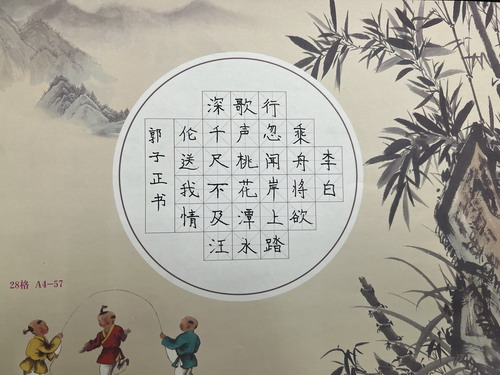 李白
乘舟将欲
行忽闻岸上踏
歌声桃花潭水
深千尺不及汪
伦送我情
郭子正书
28格 A4-57